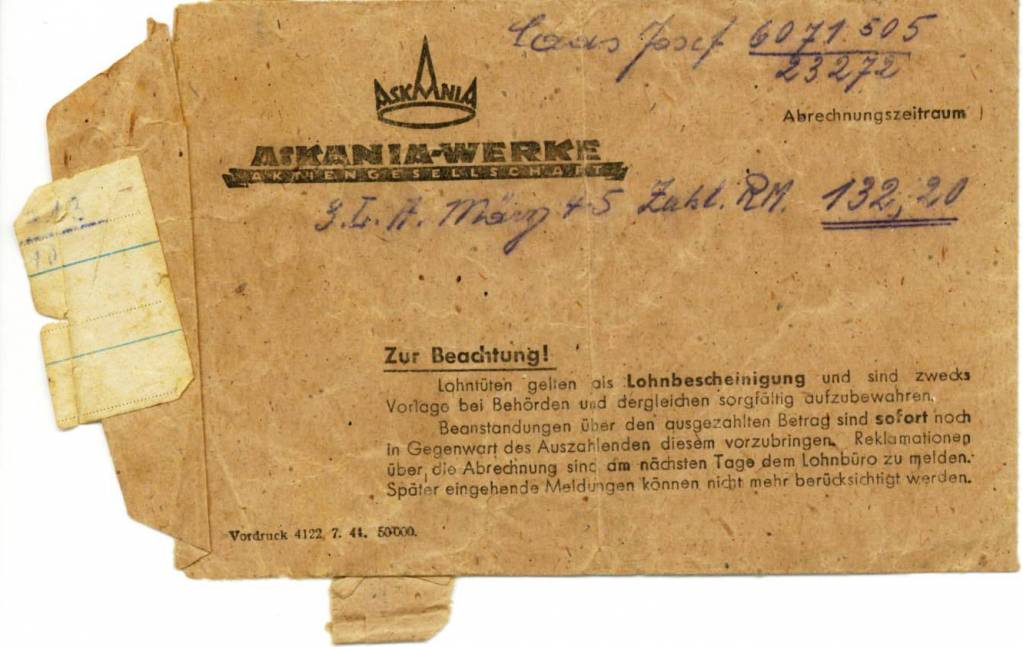 Josef 6071.505
23272
ASKANIA
Abrechnungszeitraum
ASKANIA-WERKE
AKTIENGESELLSCHAFT
März + 5 Zahl. RM. 132,20
Zur Beachtung!
Lohntüten gelten als Lohnbescheinigung und sind zwecks
Vorlage bei Behörden und dergleichen sorgfältig aufzubewahren.
Beanstandungen über den ausgezahlten Betrag sind sofort noch
in Gegenwart des Auszahlenden diesem vorzubringen. Reklamationen
über die Abrechnung sind am nächsten Tage dem Lohnbüro zu melden.
Später eingehende Meldungen können nicht mehr berücksichtigt werden.
Vordruck 4122 7. 44. 50000.